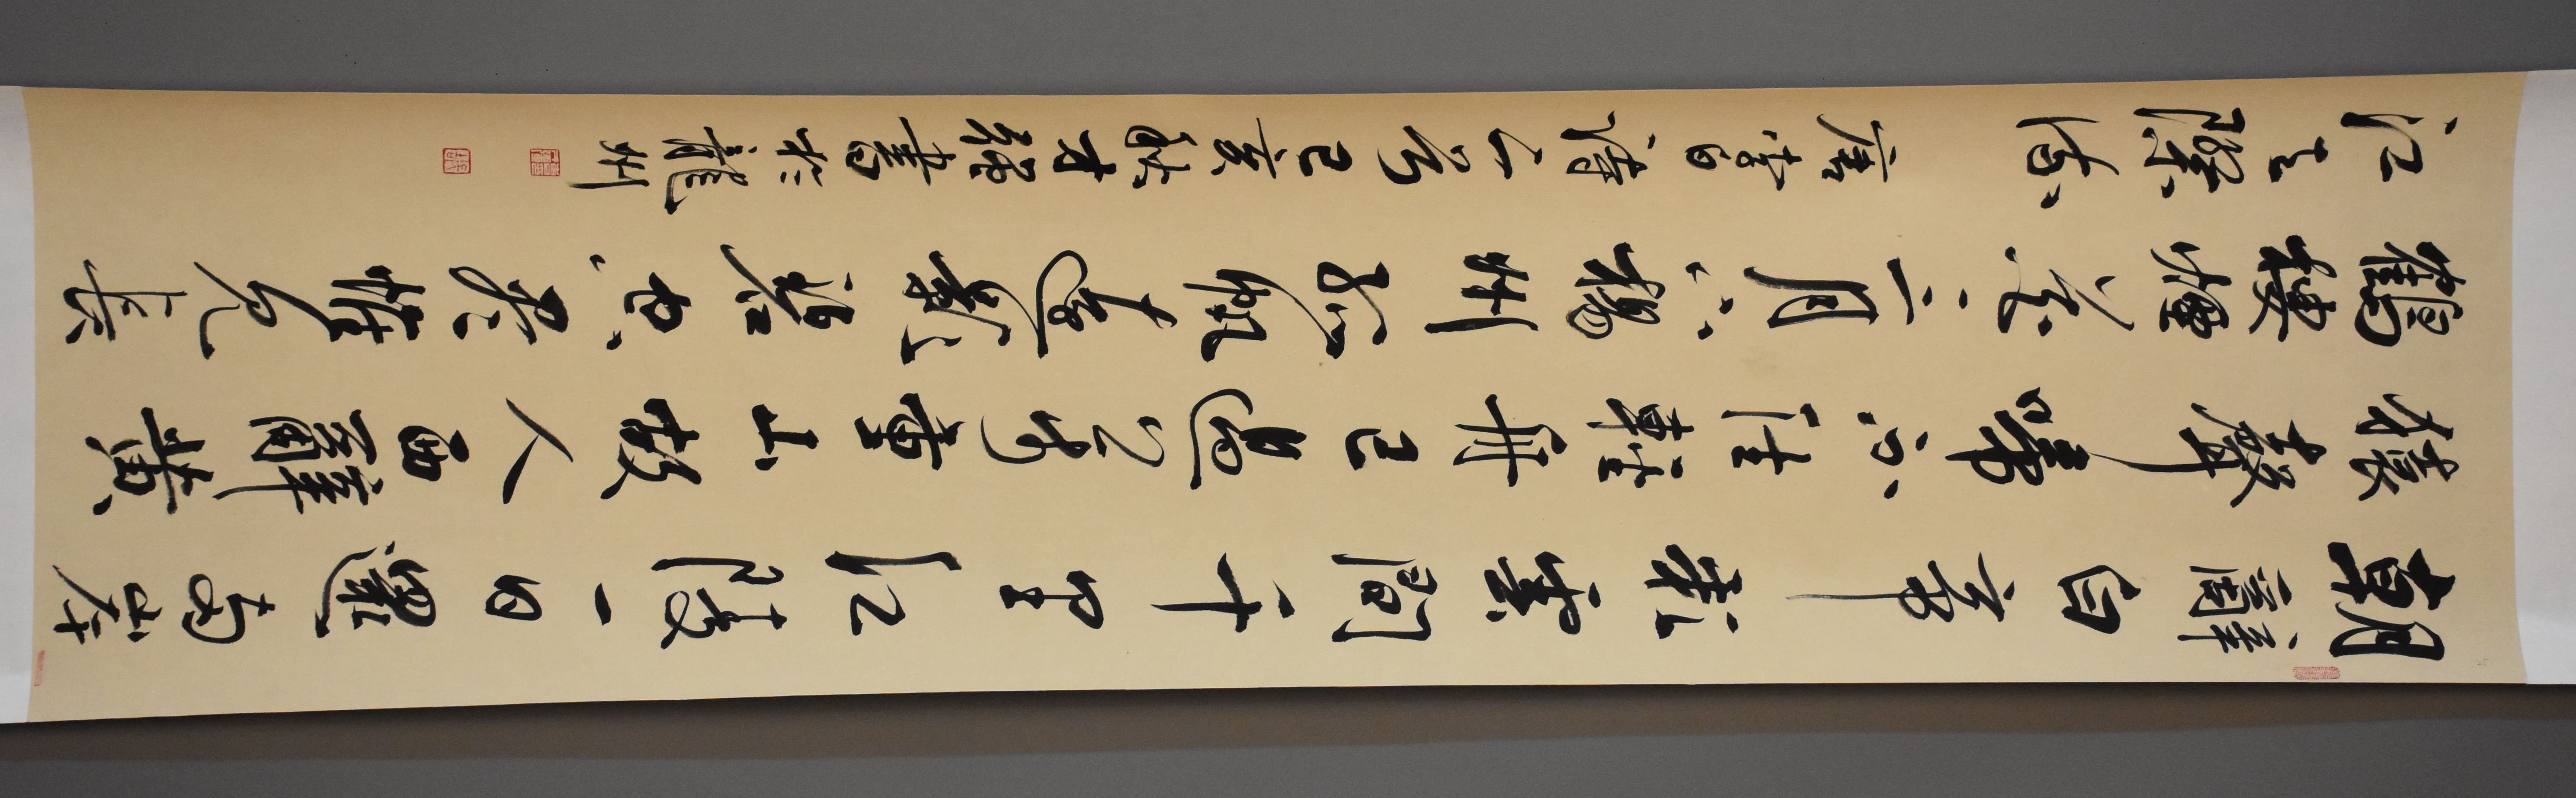 朝辭白帝彩雲間千里江陵一日還兩岸
猿聲啼不住輕舟已過万重山故人西辭黃
鶴樓煙花三月下揚州孤帆遠影碧空盡惟見長
江天際流 唐李白詩二首己亥秋才書於龍州